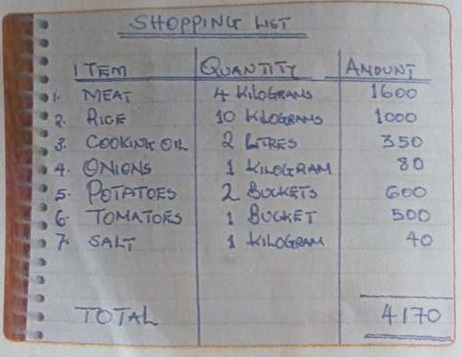 SHOPPING LIST
ITEM QUANTITY AMOUNT
1. MEAT 4 KILOGRAMS 1600
2. RICE 10 KILOGRAMS 1000
3. COOKING OIL 2 LITRES 350
4. ONIONS 1 KILOGRAM 80
5. POTATOES 2 BUCKETS 600
6. TOMATOES 1 BUCKET 500
7. SALT 1 KILOGRAM 40
TOTAL 4170